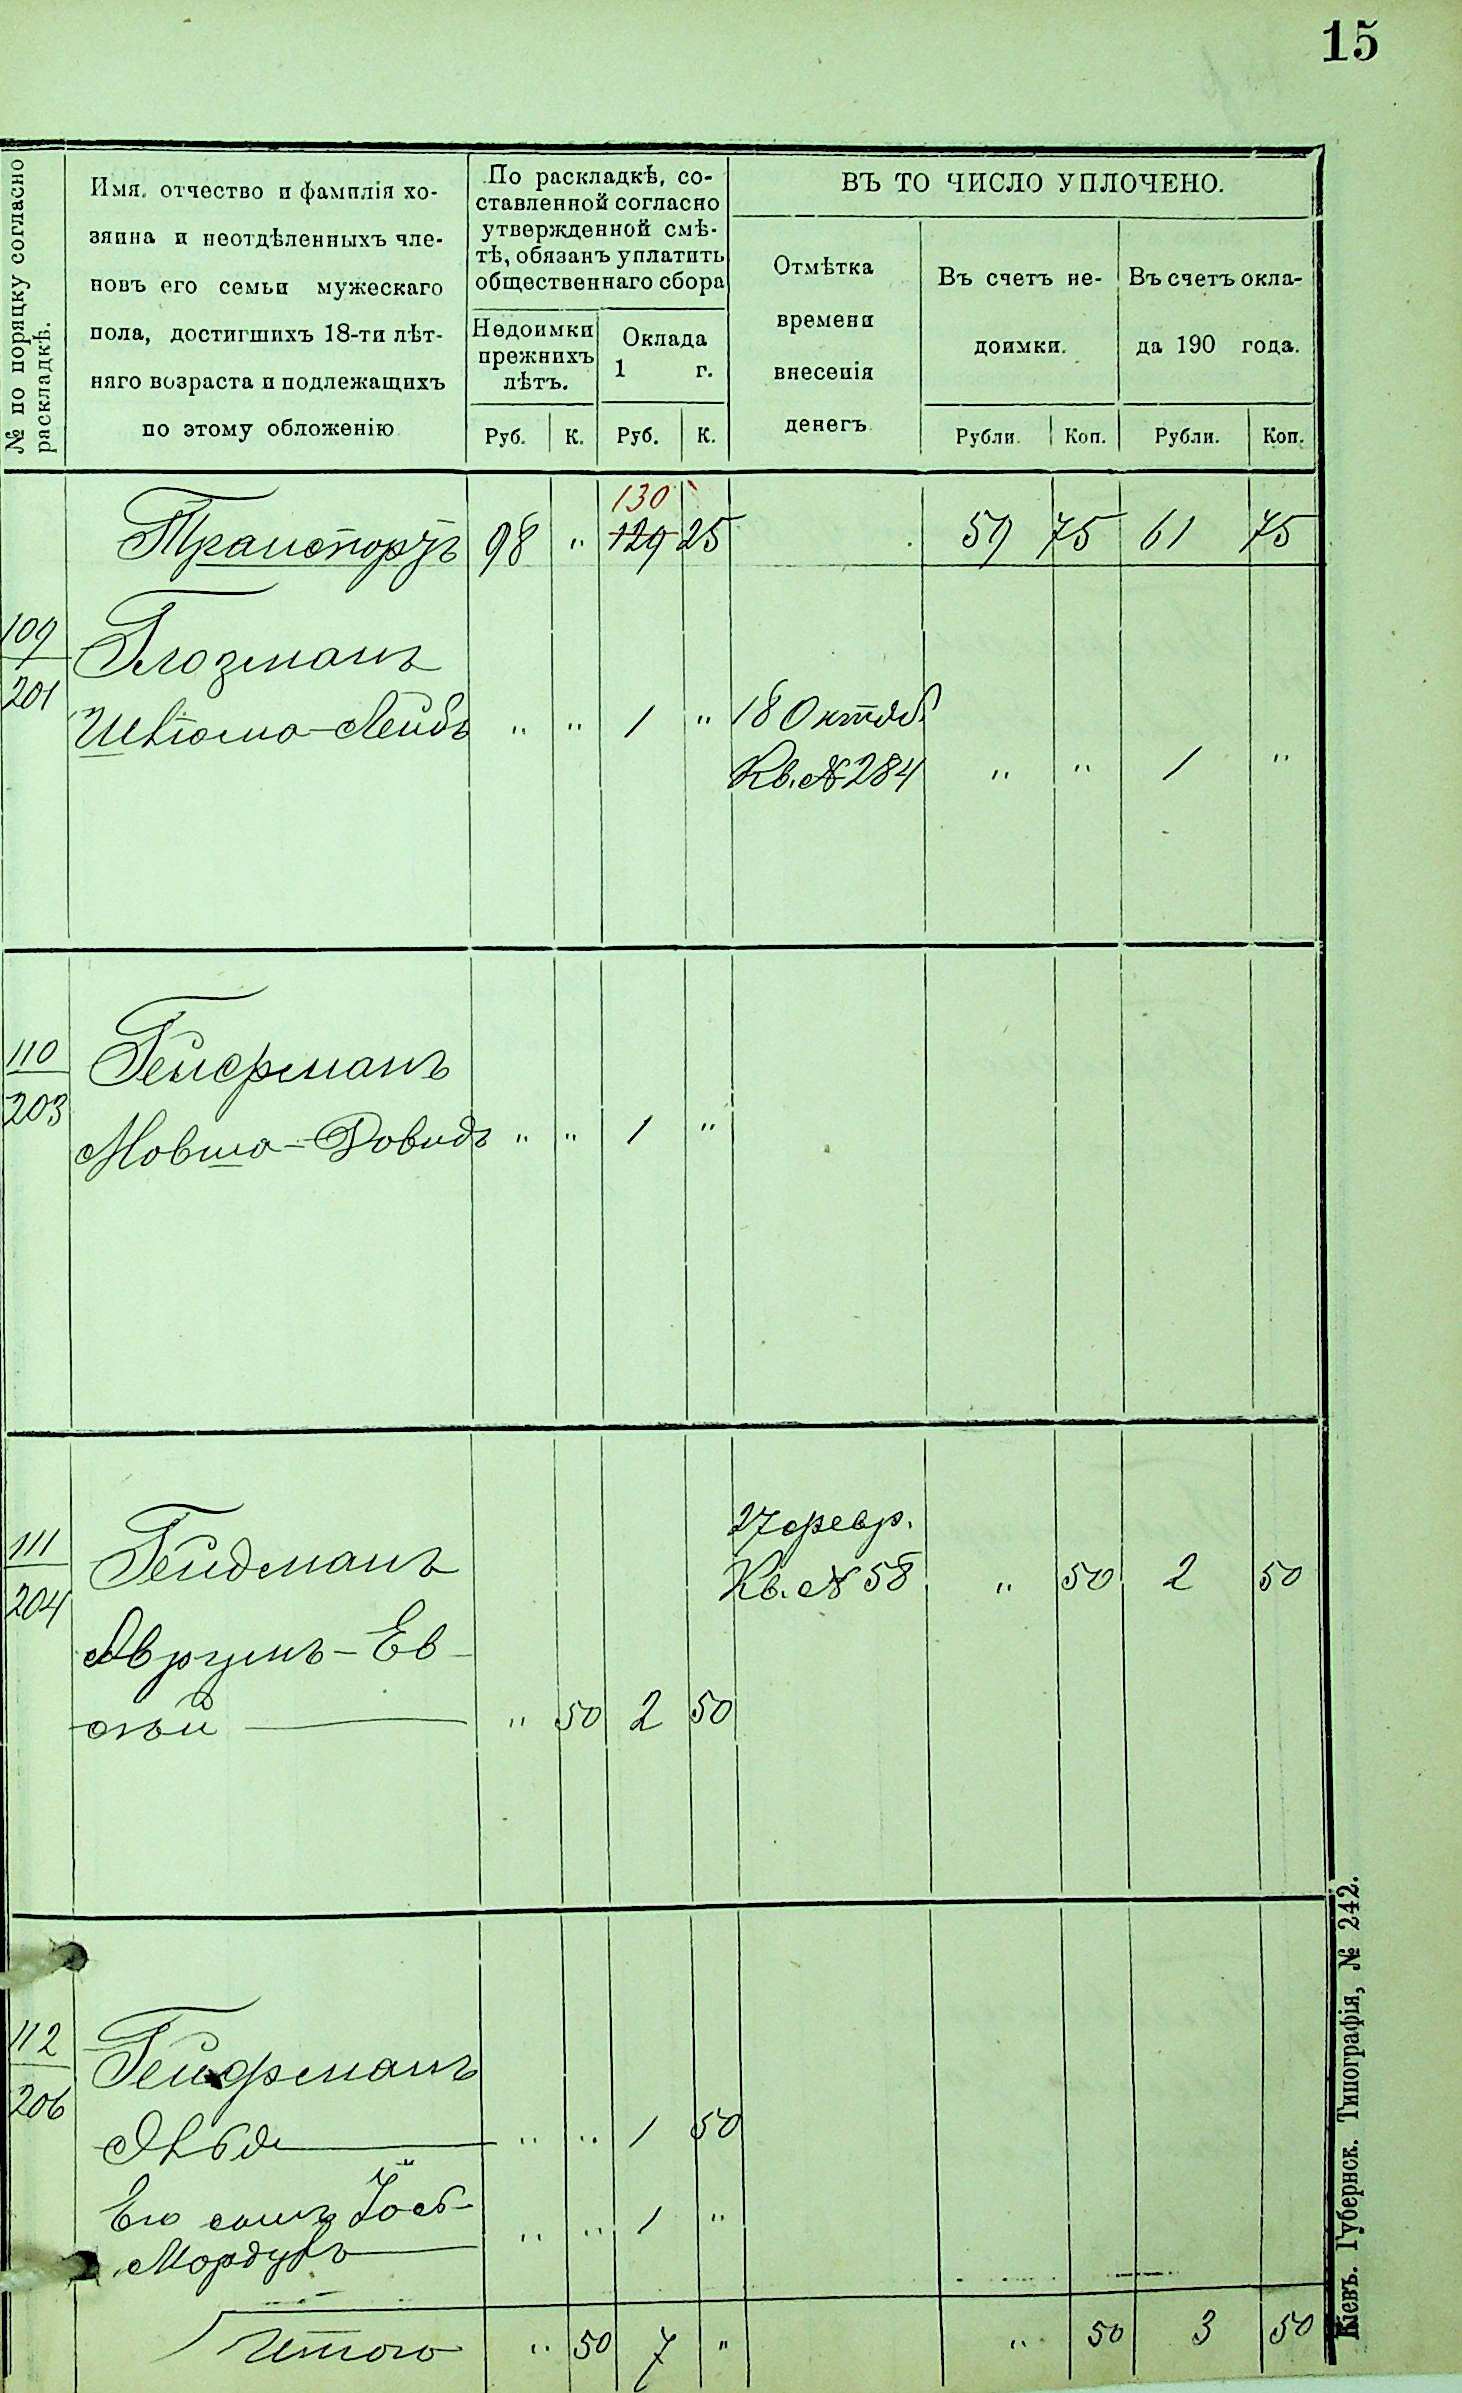 15
№ по порядку согласно
раскладкѣ.
Имя, отчество и фамилія хо-
зяина и неотдѣленныхъ чле-
новъ его семьи мужескаго
пола, достигшихъ 18-ти лѣт-
няго возраста и подлежащихъ
по этому обложенію
По раскладкѣ, со-
ставленной согласно
утвержденной смѣ-
тѣ, обязанъ уплатить
общественнаго сбора
Недоимки
прежнихъ
лѣтъ.
Оклада
1 г.
ВЪ ТО ЧИСЛО УПЛОЧЕНО.
Отмѣтка
времени
внесенія
денегъ
Въ счетъ не-
доимки.
Въ счетъ окла-
да 190 года.
Руб. К. Руб. К. Рубли. Коп. Рубли. Коп.
130
Транспортъ 98 " 129 25 59 75 61 75
109
201
Глозманъ
Шлома-Лейбъ " " 1 " 18 Октяб.
Кв. № 284 " " 1 "
110
203
Гейфманъ
Мовша-Довидъ " " 1 "
27 февр.
111
204
Гейдманъ Кв. № 58 " 50 2 50
Аврумъ-Ев-
сѣй " 50 2 50
112
206
Гейфманъ
" " 1 50
Его сынъ Іось-
Мордухъ " " 1 "
Итого " 50 7 " " 50 3 50
Кіевъ. Губернск. Типографія, № 242.